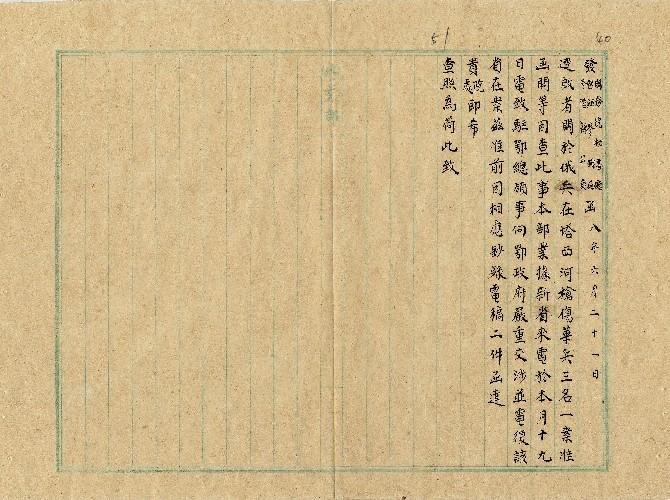 40
51
發 函 八年六月二十一日
逕啟者關於俄兵在塔西河槍傷華兵三名一案准
函開等因查此事本部業據新省來電於本月十九
日電致駐鄂總領事向鄂政府嚴重交涉並電復該
省在案茲准前因相應鈔錄電稿二件函達
貴院處即希
查照為荷此致